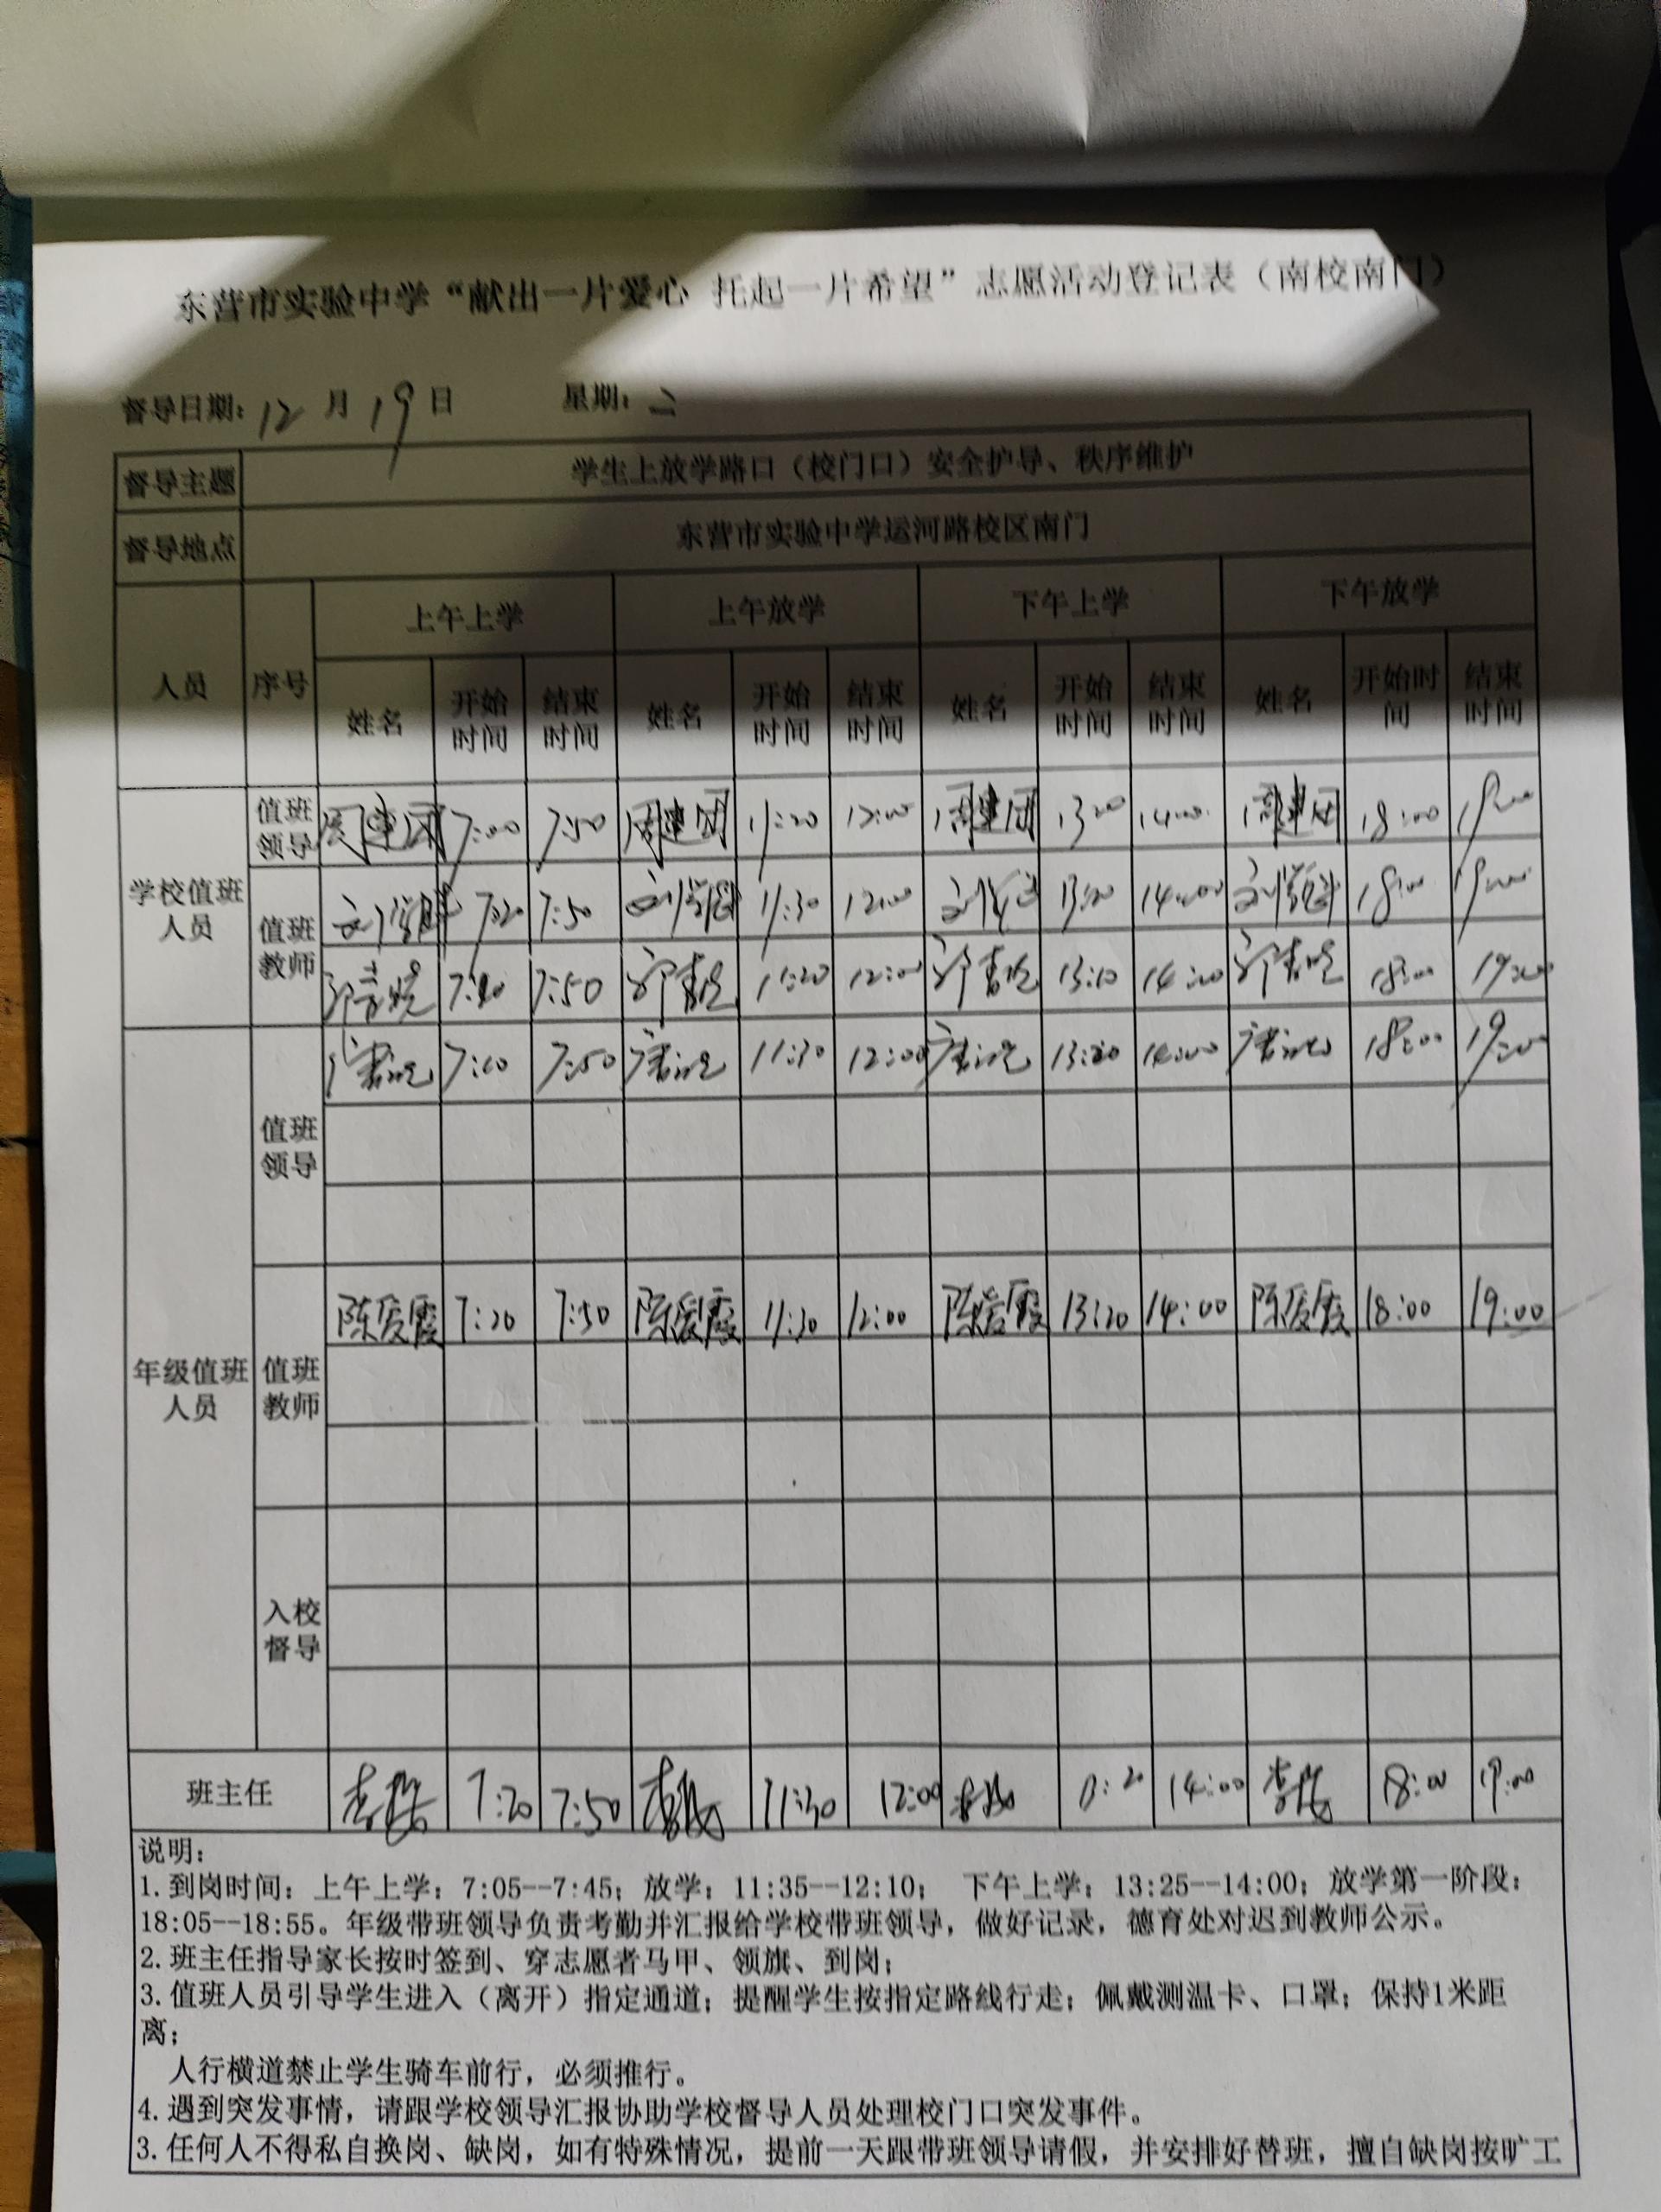 东营市实验中学“献出一片爱心 托起一片希望”志愿活动登记表（南校南门）
督导日期：12 月 19 日 星期：二
督导主题 学生上放学路口（校门口）安全护导、秩序维护
督导地点 东营市实验中学运河路校区南门
人员 序号 上午上学 上午放学 下午上学 下午放学
姓名 开始时间 结束时间 姓名 开始时间 结束时间 姓名 开始时间 结束时间 姓名 开始时间 结束时间
学校值班人员 值班领导 周建团 7:00 7:50 周建团 11:20 12:00 周建团 13:20 14:00 周建团 18:00 19:00
值班教师 7:20 7:50 11:30 12:00 13:20 14:00 18:00 19:00
7:50 11:20 12:00 13:10 14:00 18:00 19:00
年级值班人员 值班领导 7:50 11:30 12:00 13:20 14:00 18:00 19:00
值班教师 陈爱霞 7:20 7:50 陈爱霞 11:30 12:00 陈爱霞 13:20 14:00 陈爱霞 18:00 19:00
入校督导
班主任 7:20 7:50 11:30 12:00 14:00 18:00 19:00
说明：
1.到岗时间：上午上学：7:05--7:45；放学：11:35--12:10； 下午上学：13:25--14:00；放学第一阶段：
18:05--18:55。年级带班领导负责考勤并汇报给学校带班领导，做好记录，德育处对迟到教师公示。
2.班主任指导家长按时签到、穿志愿者马甲、领旗、到岗；
3.值班人员引导学生进入（离开）指定通道；提醒学生按指定路线行走；佩戴测温卡、口罩；保持1米距
离；
人行横道禁止学生骑车前行，必须推行。
4.遇到突发事情，请跟学校领导汇报协助学校督导人员处理校门口突发事件。
3.任何人不得私自换岗、缺岗，如有特殊情况，提前一天跟带班领导请假，并安排好替班，擅自缺岗按旷工